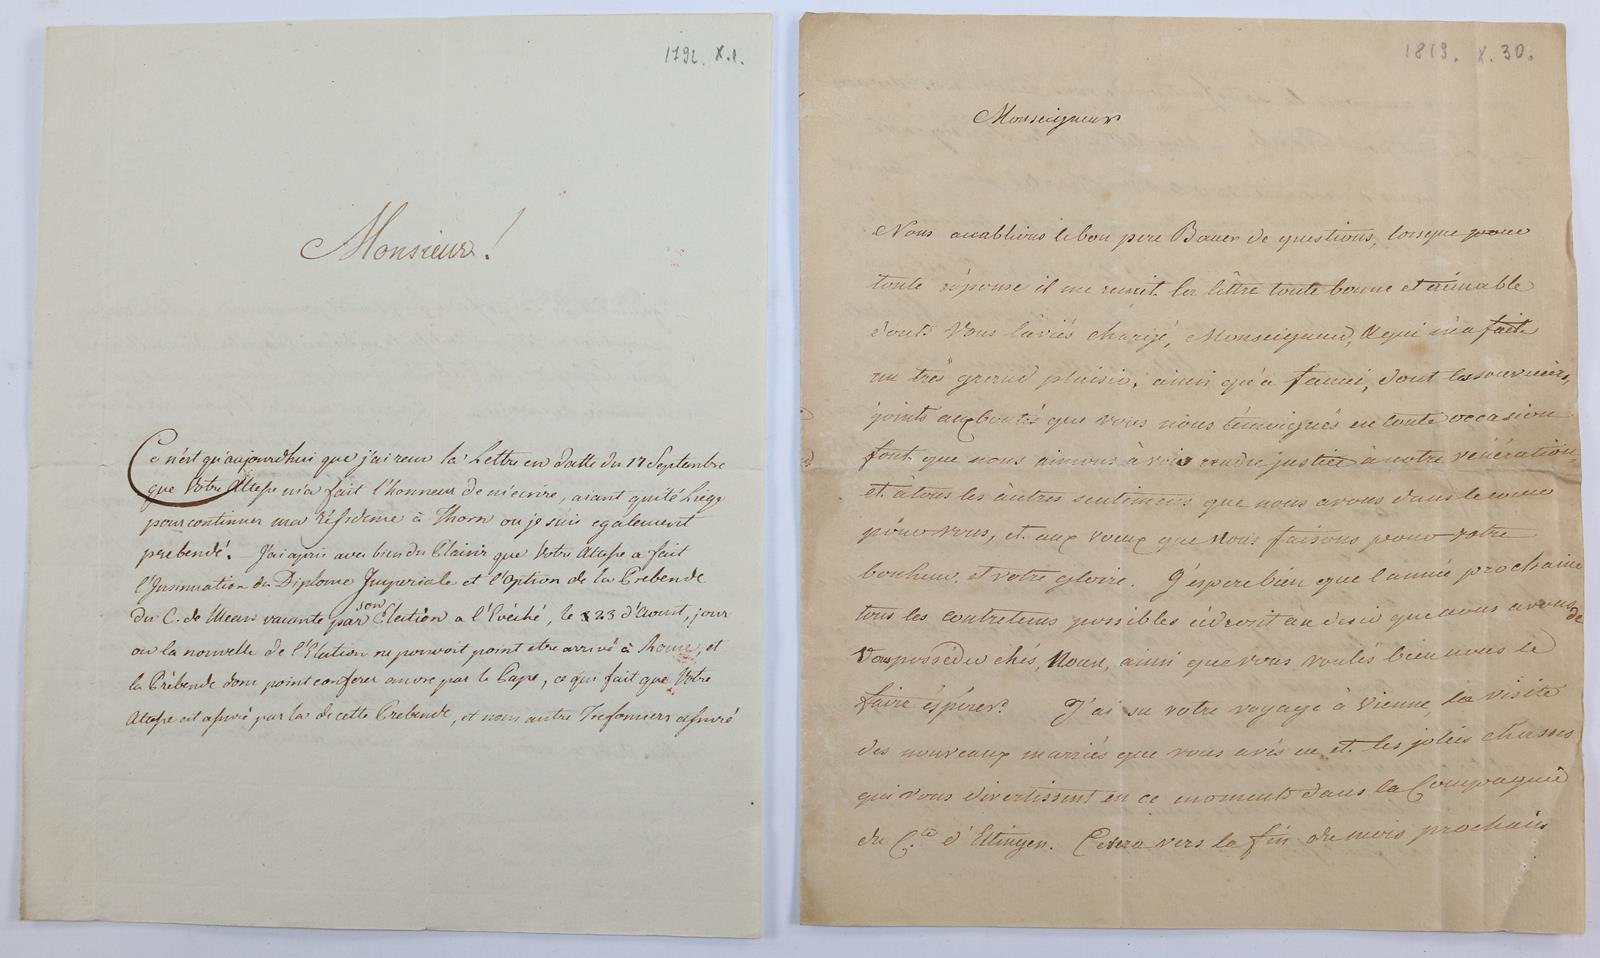 1792. X. 1.
Monsieur!
Ce n'est qu'aujourdhui que j'ai recu la Lettre en datte du 17 Septembre
que Votre Altesse m'a fait l'honneur de m'ecrire, aiant quité Liége
pour continuer ma résidence à Thorn ou je suis egalement
prebendé. J'ai apris avec bien du Plaisir que Votre Altesse a fait
l'Insinuation du Diplome Imperiale et l'Option de la Prebende
du C. de Mean vacante par son Election a l'Evéché, le 23 d'Aout, jour
ou la nouvelle de l'Election ne pouvoit point etre arrivé à Rome, et
la Prébende donc point conferer encore par le Pape, ce qui fait que Votre
Altesse est assuré par la de cette Prebende, et nous autre Trefonciers assuré
1819. X. 30.
Monseigneur
Nous accablions le bon pere Bauer de questions, lorsque pour
toute réponse il me remit la lêttre toute bonne et aimable
dont Vous l'aviés chargé, Monseigneur, & qui m'a fait
un très grand plaisir, ainsi qu'a fanni, dont les souvenirs,
joints aux bontés que vous nous témoignés en toute occasion
font que nous aimons à voir rendre justice à notre vénération,
et à tous les autres sentimens que nous avons dans le coeur
pour vous, et aux voeux que nous faisons pour votre
bonheur, et votre gloire. J'espere bien que l'année prochaine
tous les contretems possibles céderont au desir que nous avons de
Vous posséder chés Nous, ainsi que vous voulés bien nous le
faire éspérer. J'ai su votre voyage à Vienne, la visite
des nouveaux marriés que vous avés eu, et les jolies chasses
qui vous divertissent en ce moment dans la Compagnie
du C.te d'Ettingen. Ce sera vers la fin du mois prochain